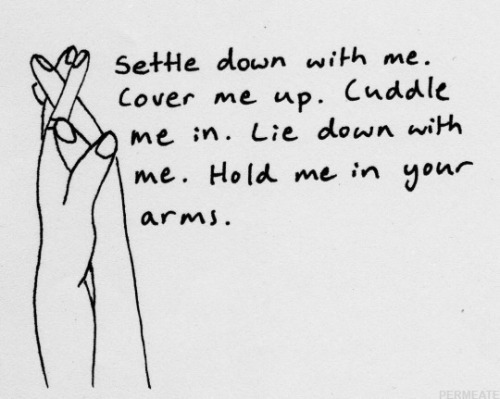 Settle down with me.
Cover me up. Cuddle
me in. Lie down with
me. Hold me in your
arms.
PERMEATE